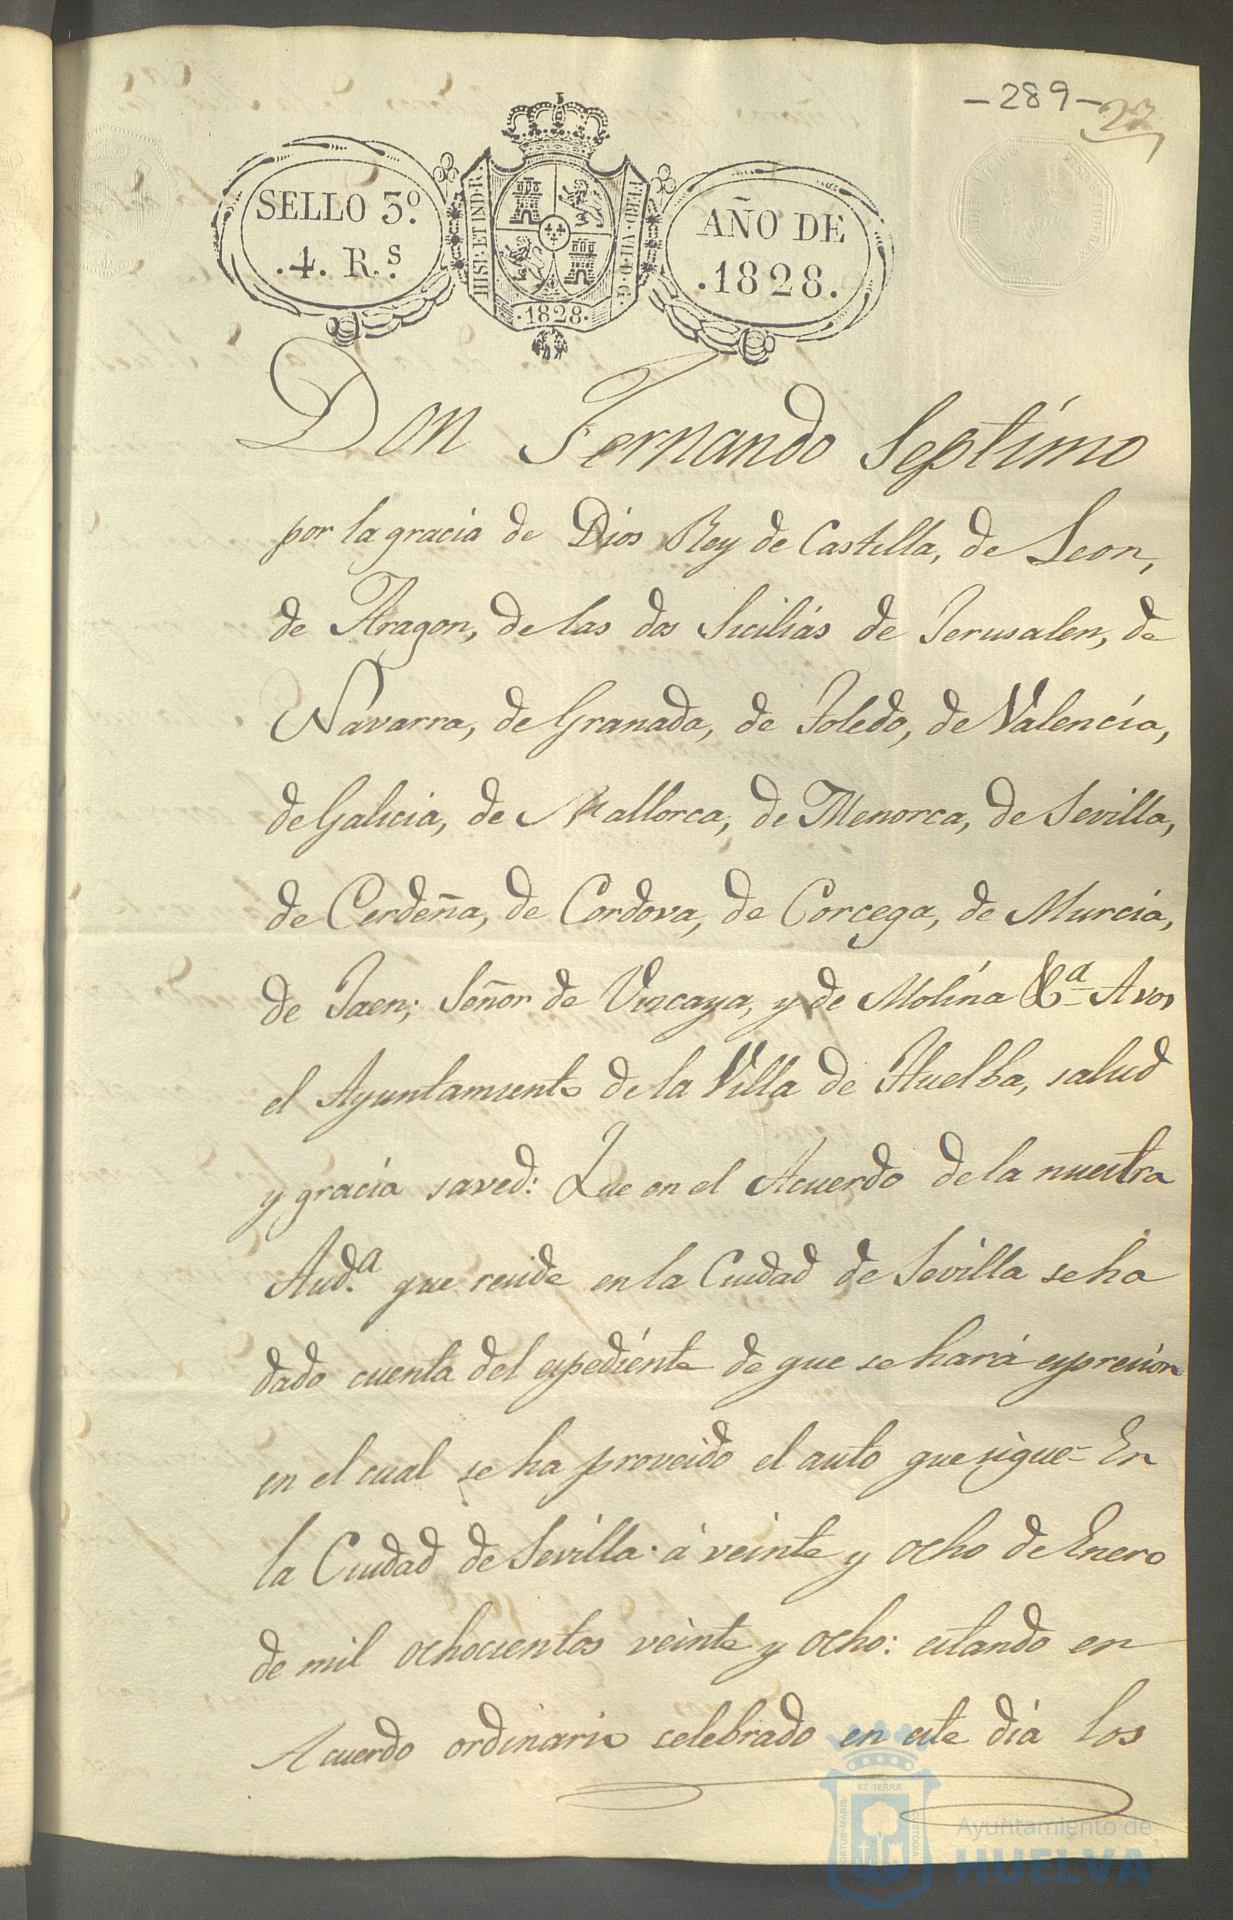 -289-
27
SELLO 3º
.4. R.s
HISP. ET IND. R.
FERD. VII. D. G.
.1828.
AÑO DE
.1828.
Don Fernando Septímo
por la gracia de Dios Rey de Castilla, de Leon,
de Aragon, de las dos Siciliás de Jerusalen, de
Navarra, de Granada, de Toledo, de Valencia,
de Galicia, de Mallorca, de Menorca, de Sevilla,
de Cerdeña, de Cordova, de Corcega, de Murcia,
de Jaen; Señor de Viscaya, y de Molína &ª A vos
el Ayuntamiento de la Villa de Huelba, salud
y gracia saved: Que en el Acuerdo de la nuestra
Aud.ª que reside en la Ciudad de Sevilla se ha
dado cuenta del espediénte de que se hará espresion
en el cual se ha proveido el auto que sigue= En
la Ciudad de Sevilla á veinte y ocho de Enero
de mil ochocientos veinte y ocho: estando en
Acuerdo ordinario celebrado en este día los
PORTUS MARIS
ET TERRÆ
CUSTODIA
Ayuntamiento de
HUELVA